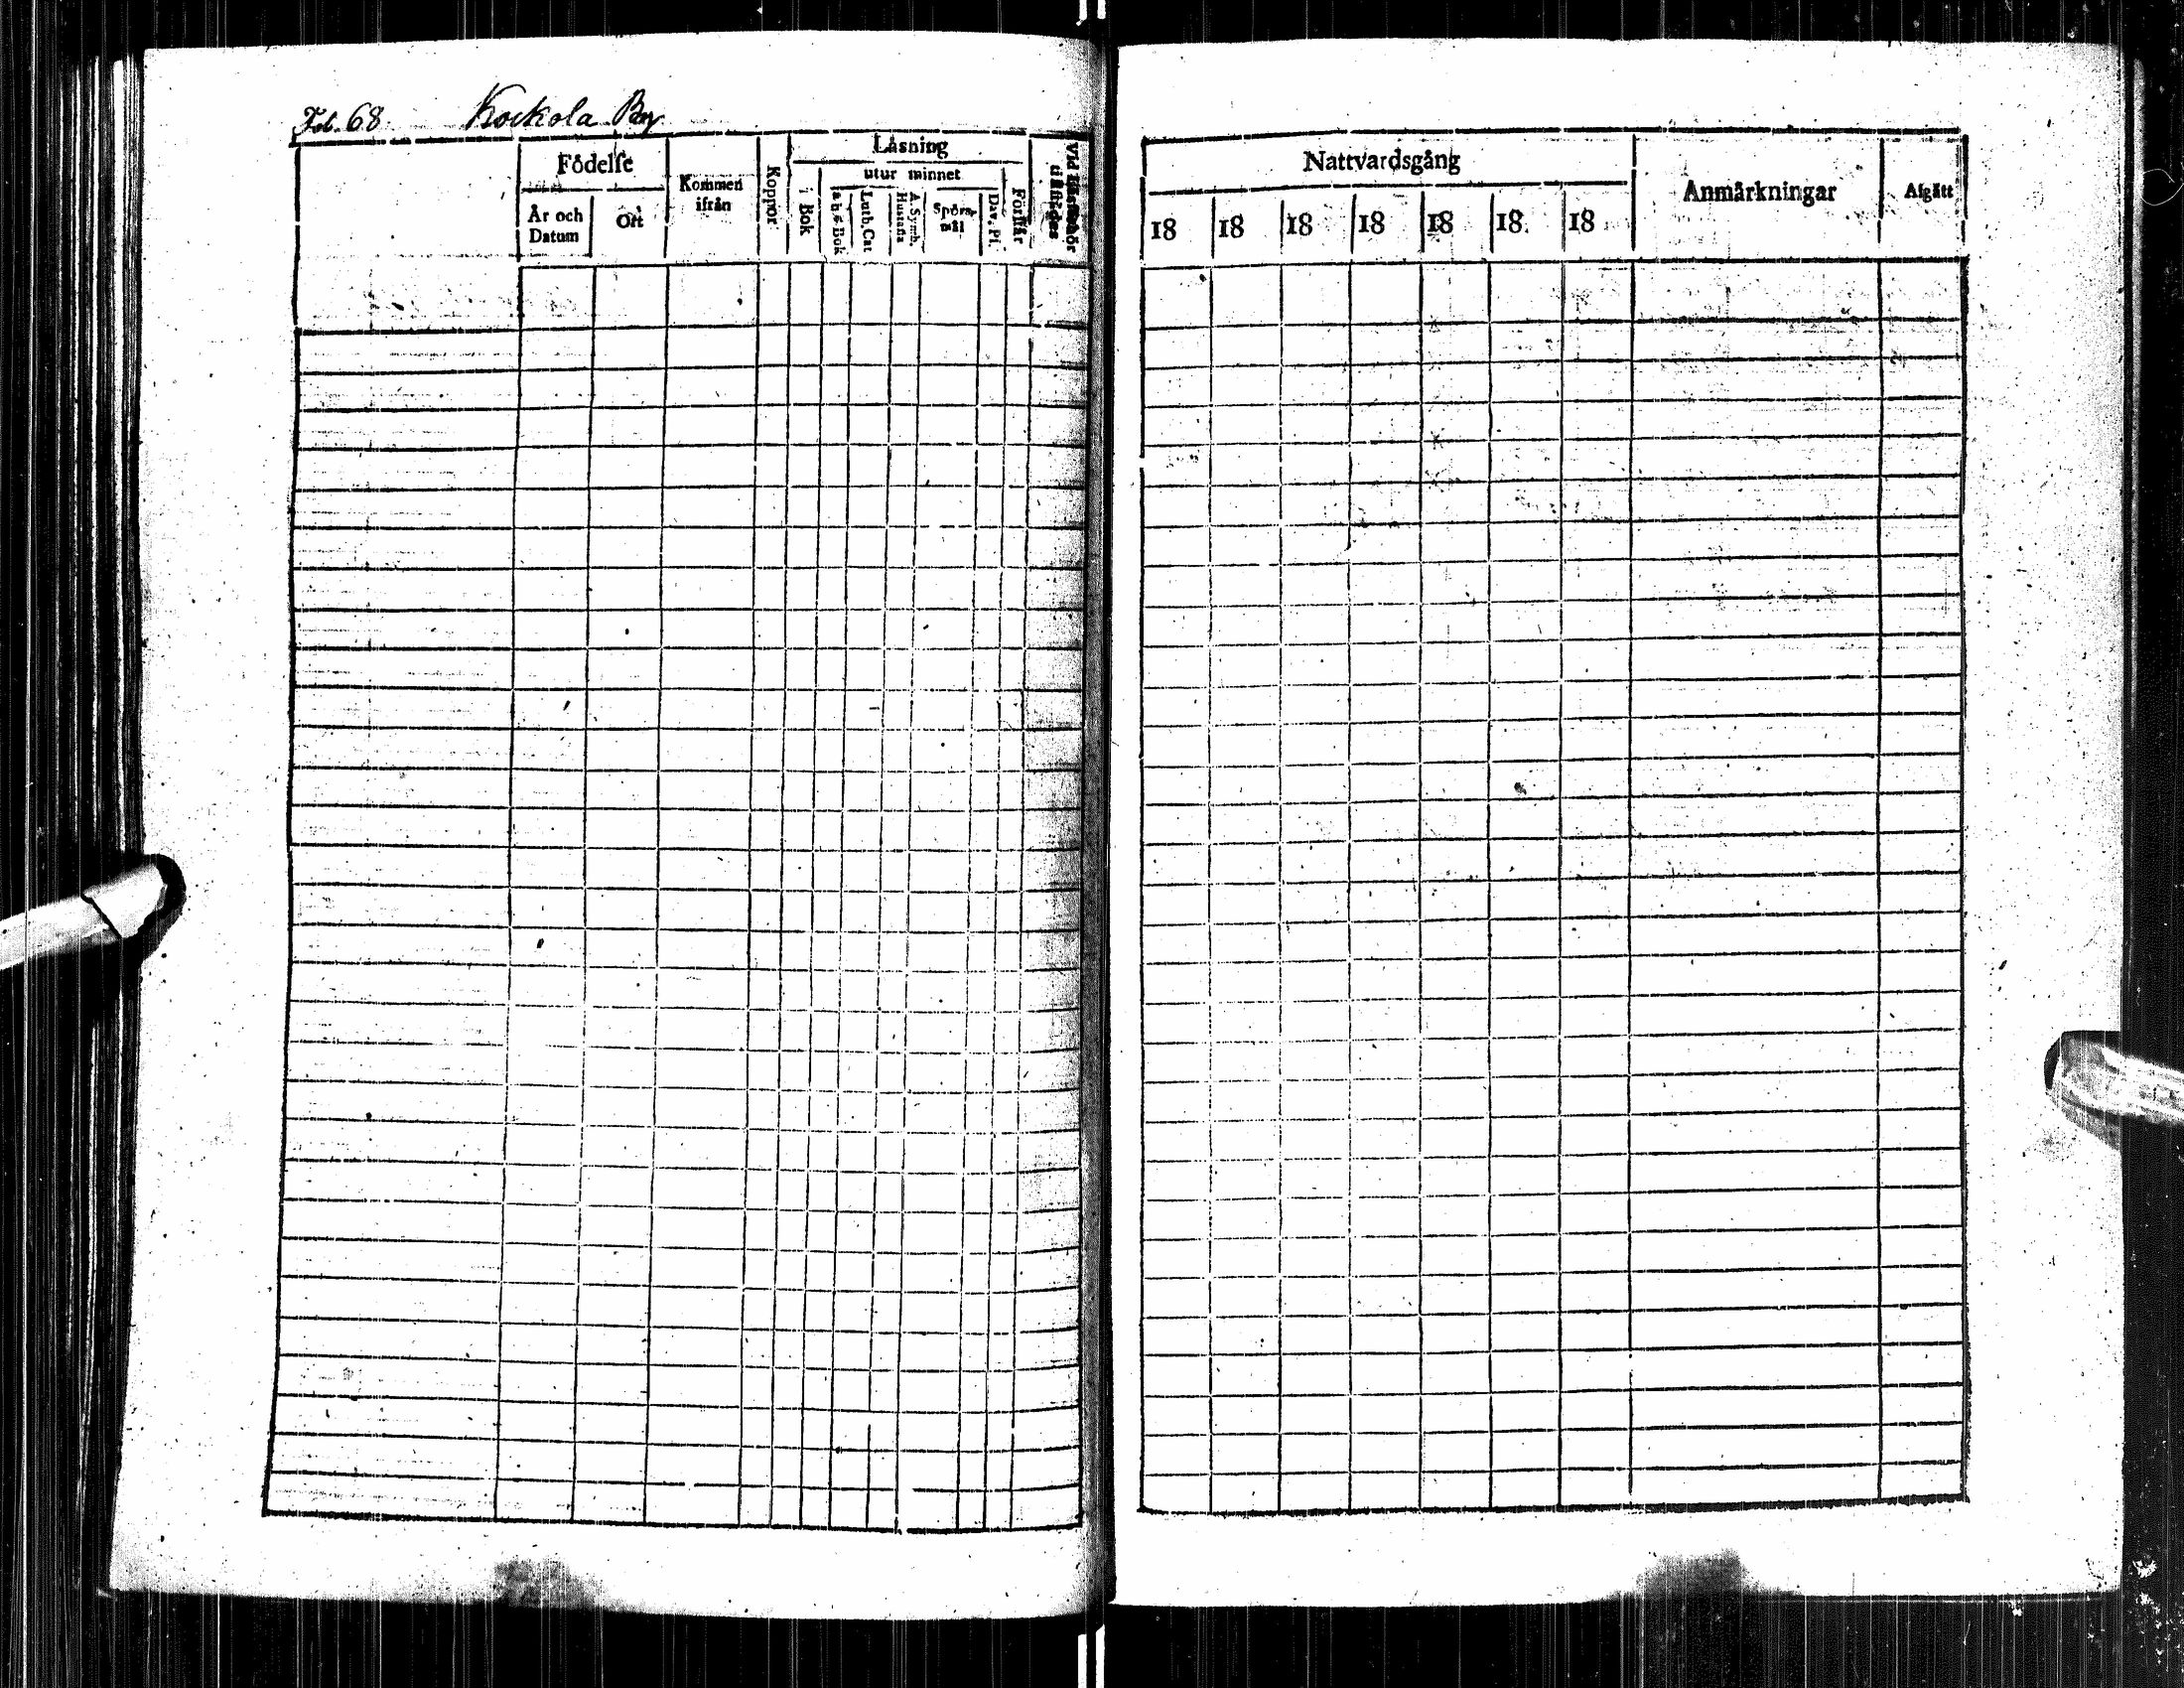 Fol. 68. Kockola By
Födelse
År och Datum
Ort
Kommen ifrån
Koppor
Läsning
i Bok
utur minnet
a b c Bok
Luth. Cat
A. Symb. Hustafla
Spörsmål
Dav. Ps.
Förstår
Vid Läsförhör
Nattvardsgång
18 18 18 18 18 18 18
Anmärkningar
Afgått